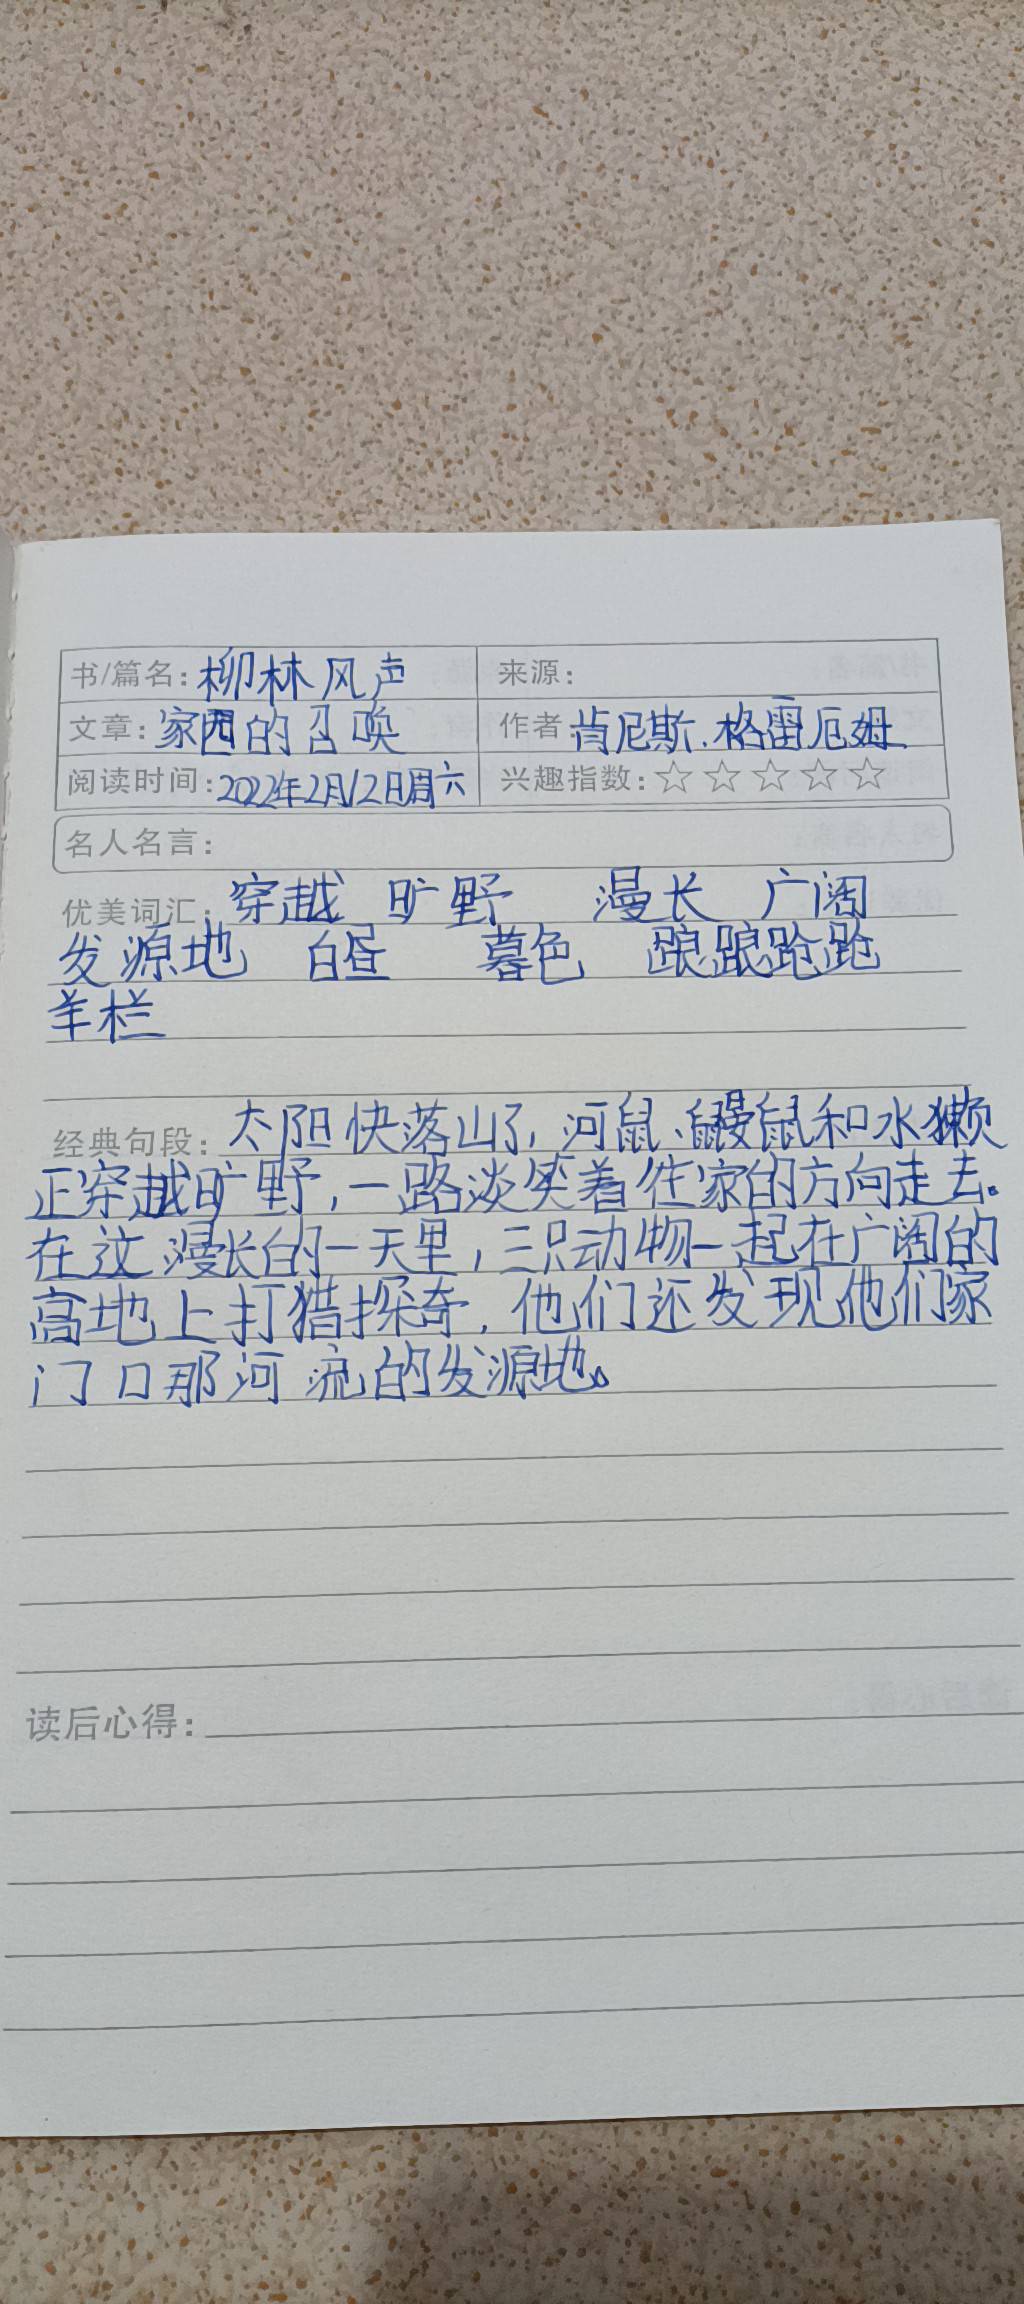 书/篇名：柳林风声 来源：
文章：家园的召唤 作者：肯尼斯.格雷厄姆
阅读时间：2022年2月12日周六 兴趣指数：☆☆☆☆☆
名人名言：
优美词汇：穿越 旷野 漫长 广阔
发源地 白昼 暮色 踉踉跄跄
羊栏
经典句段：太阳快落山了，河鼠、鼹鼠和水獭
正穿越旷野，一路淡笑着往家的方向走去。
在这漫长的一天里，三只动物一起在广阔的
高地上打猎探奇，他们还发现他们家
门口那河流的发源地。
读后心得：